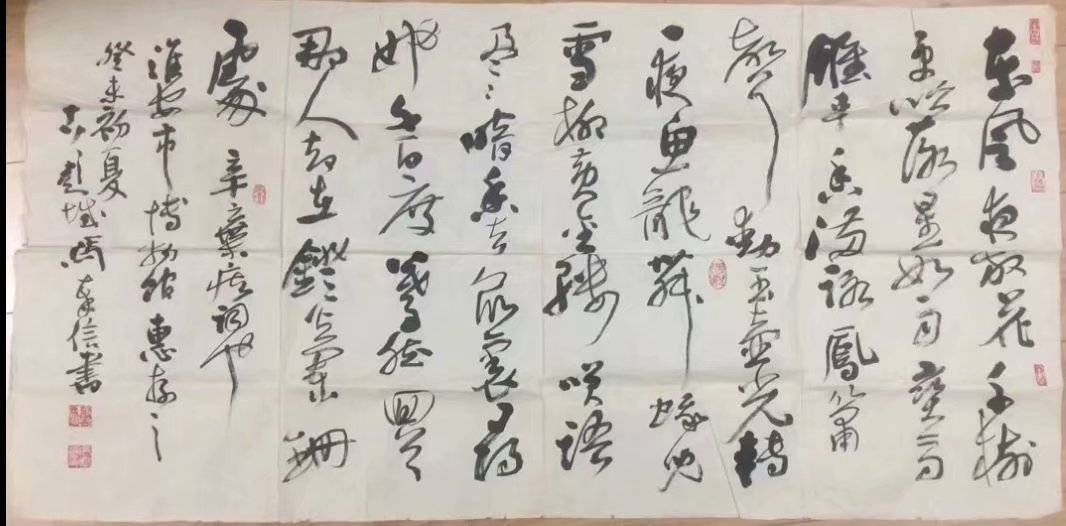 東風夜放花千樹
更吹落星如雨寶馬
雕車香滿路鳳簫
聲動玉壺光轉
一夜魚龍舞蛾兒
雪柳黃金縷笑語
盈〻暗香去眾裏尋
她千百度驀然回首
那人卻在鐙火闌珊
處 辛棄疾詞也
淮安市博物館惠存之
癸未初夏
信書